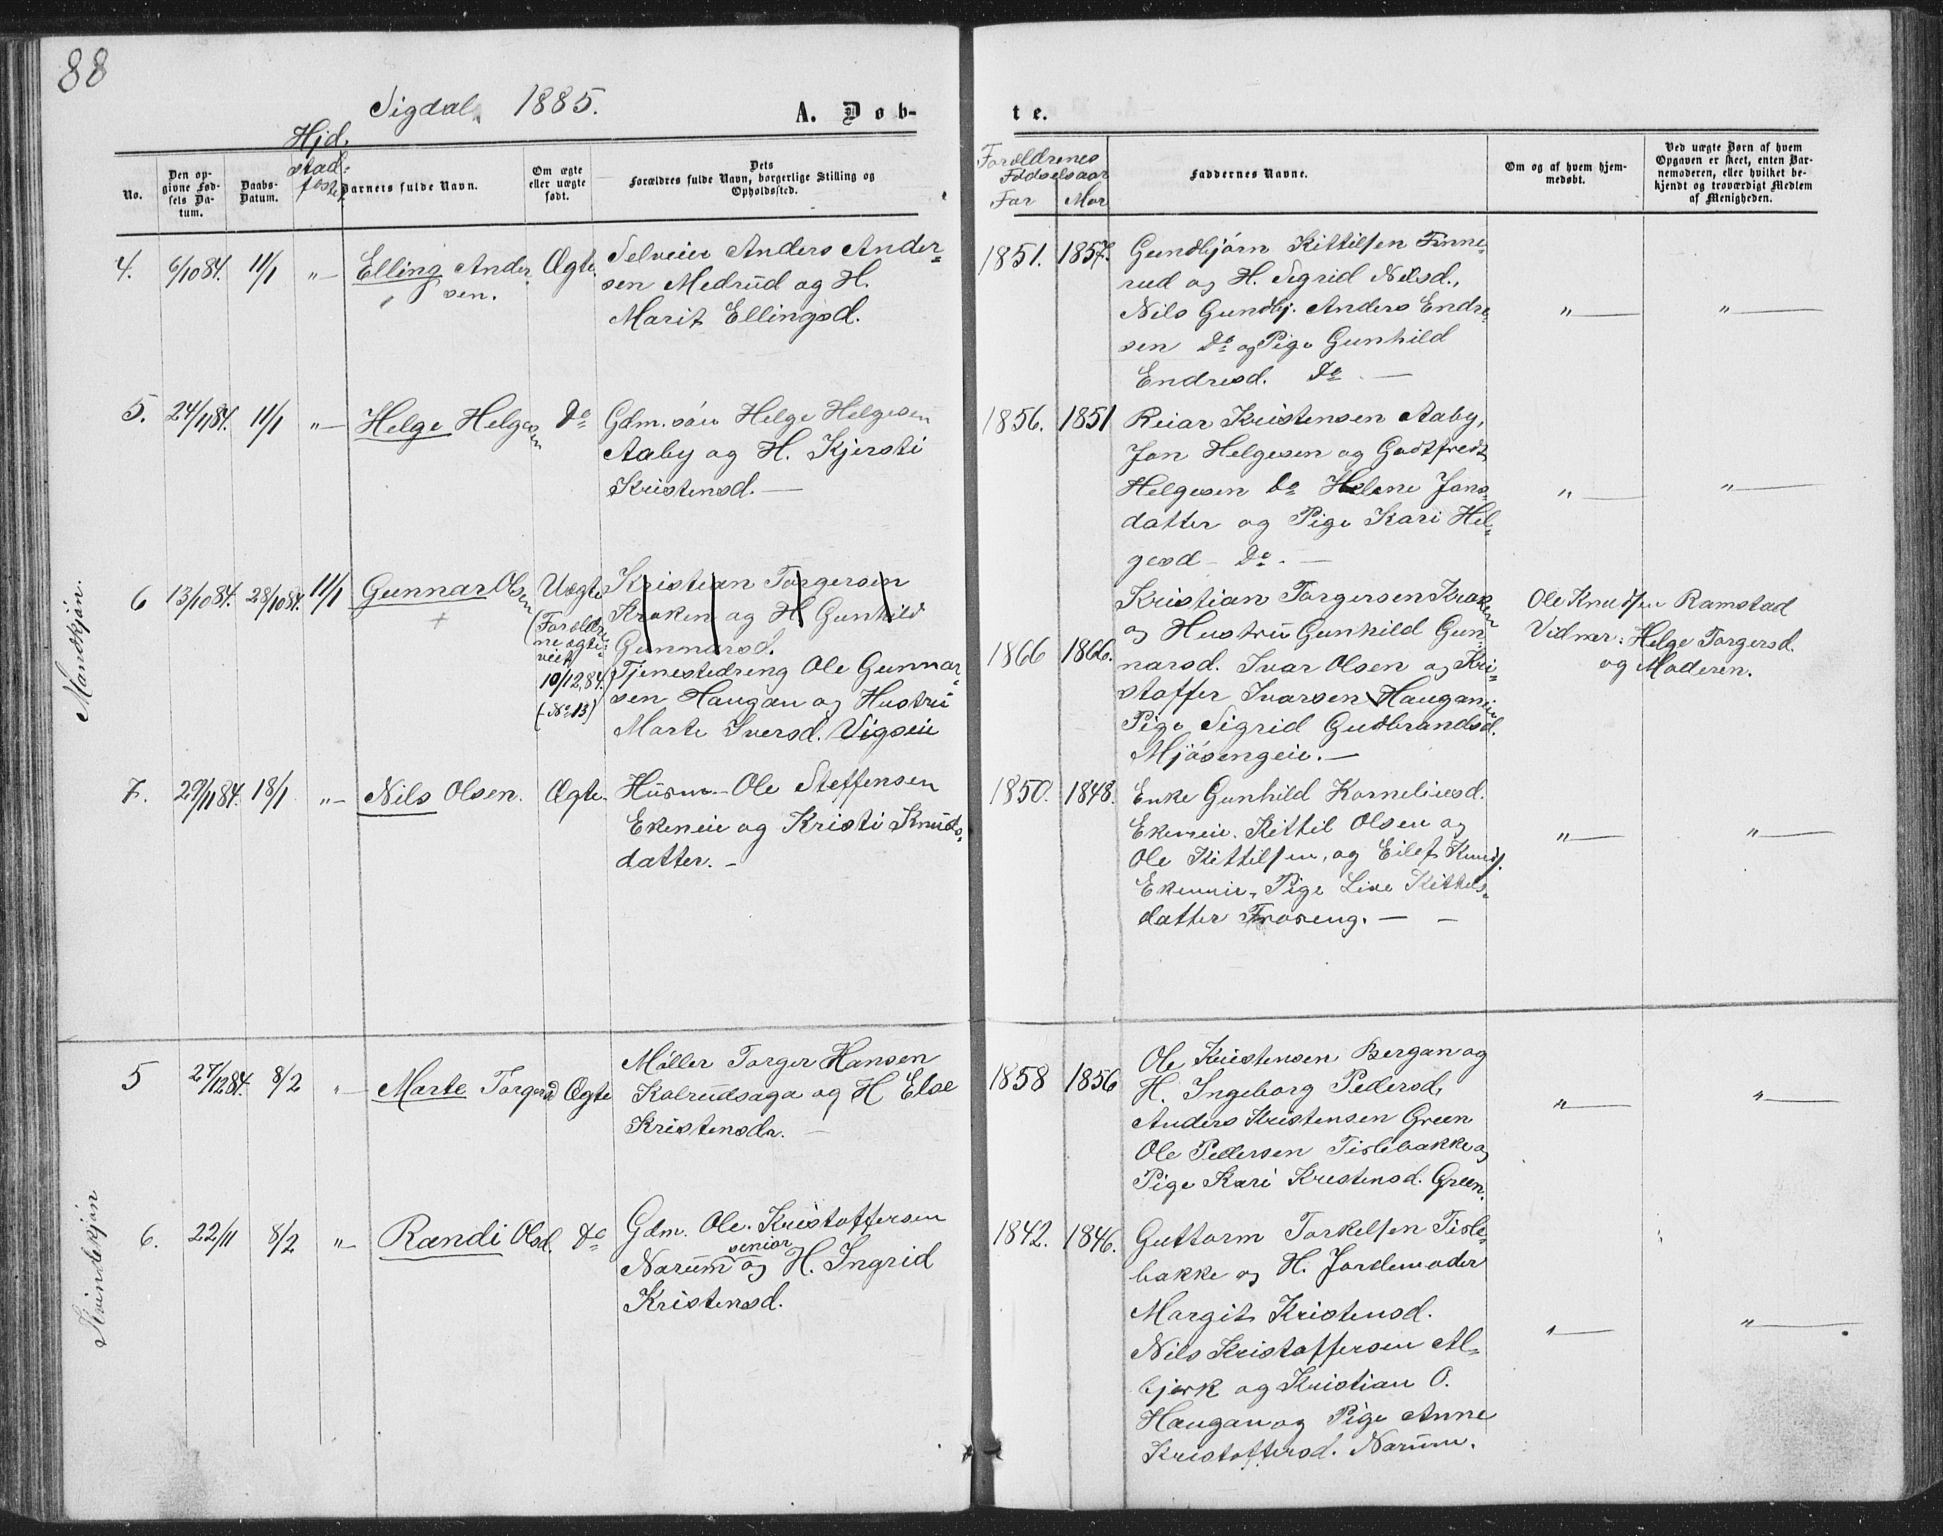 88
Sigdal 1885.
A. Døb-
te.
Hjd.
stad-
fest.
No.
Den op-
givne Fød-
sels Da-
tum.
Daabs-
Datum.
Barnets fulde Navn.
Om ægte
eller uægte
født.
Dets
Forældres fulde Navn, borgerlige Stilling og
Opholdssted.
Forældrenes
Fødselsaar
Far Mor
Faddernes Navne.
Om og af hvem hjem-
medøbt.
Ved uægte Børn af hvem
Opgaven er skeet, enten Bar-
nemoderen, eller hvilket be-
kjendt og troværdigt Medlem
af Menigheden.
Mandkjøn.
4. 6/10 84. 11/1 " — Elling Ander
sen.
Ægte.
Selveier Anders Ander-
sen Medrud og H.
Marit Ellingsd.
1851. 1857.
Gundbjørn Kittilsen Finne-
rud og H. Sigrid Nilsd.,
Nils Gundbj. Anders Endre-
sen Do og Pige Gunhild
Endresd. Do —
" — " —
5. 24/11 84. 11/1 " — Helge Helge
sen
Do
Gdm. søn Helge Helgesen
Aaby og H. Kjersti
Kristensd. —
1856. 1851
Reiar Kristensen Aaby,
Jon Helgesen og Godtfredt
Helgesen Do Helene Jons-
datter og Pige Kari Hel-
gesd - Do. —
" — " —
6 13/10 84. 28/10 84. 11/1 Gunnar Olsen
+
Uægte
(Foræld-
rne ægte-
viet
10/12, 84.
(No 13)
Kristian Torgersen
Kroken og H Gunhild
Gunnarsd.
Tjenestedreng Ole Gunnar-
sen Haugan og Hustru
Marte Iversd. Vigseie
1866 1866.
Kristian Torgersen Kroken
og Hustru Gunhild Gun-
narsd. Ivar Olsen og Kri-
stoffer Ivarsen Hauganeie
Pige Sigrid Gudbrandsd.
Mjøsengeie. —
Ole Knudsen Ramstad
Vidner: Helge Torgersd.
og Moderen.
7. 29/11 84. 18/1 " — Nils Olsen. Ægte.
Husm. Ole Steffensen
Ekeneie og Kristi Knuds-
datter. —
1850. 1848.
Enke Gunhild Korneliusd.
Ekeneie. Kittil Olsen og
Ole Kittilsen, og Eilef Knuds.
Ekeneie, Pige Live Kittels-
datter Froseng. — —
" — " —
Kvindekjøn
5 27/12 84. 8/2 " — Marte Torgersd Ægte
Møller Torger Hansen
Kolrudsaga og H Else
Kristensdr. —
1858 1856
Ole Kristensen Bergan og
H. Ingeborg Pedersd.
Anders Kristensen Green
Ole Pedersen Tislebakke og
Pige Kari Kristensd. Green.
" — " —
6. 22/11 8/2 " — Randi Olsd. Do
Gdm. Ole Kristoffersen
senior
Narum og H. Ingrid
Kristensd.
1842. 1846.
Guttorm Torkelsen Tisle-
bakke og H. Jordemoder
Margit Kristensd.
Nils Kristoffersen Al-
bjerk og Kristian O.
Haugan og Pige Anne
Kristoffersd. Narum.
" — " —